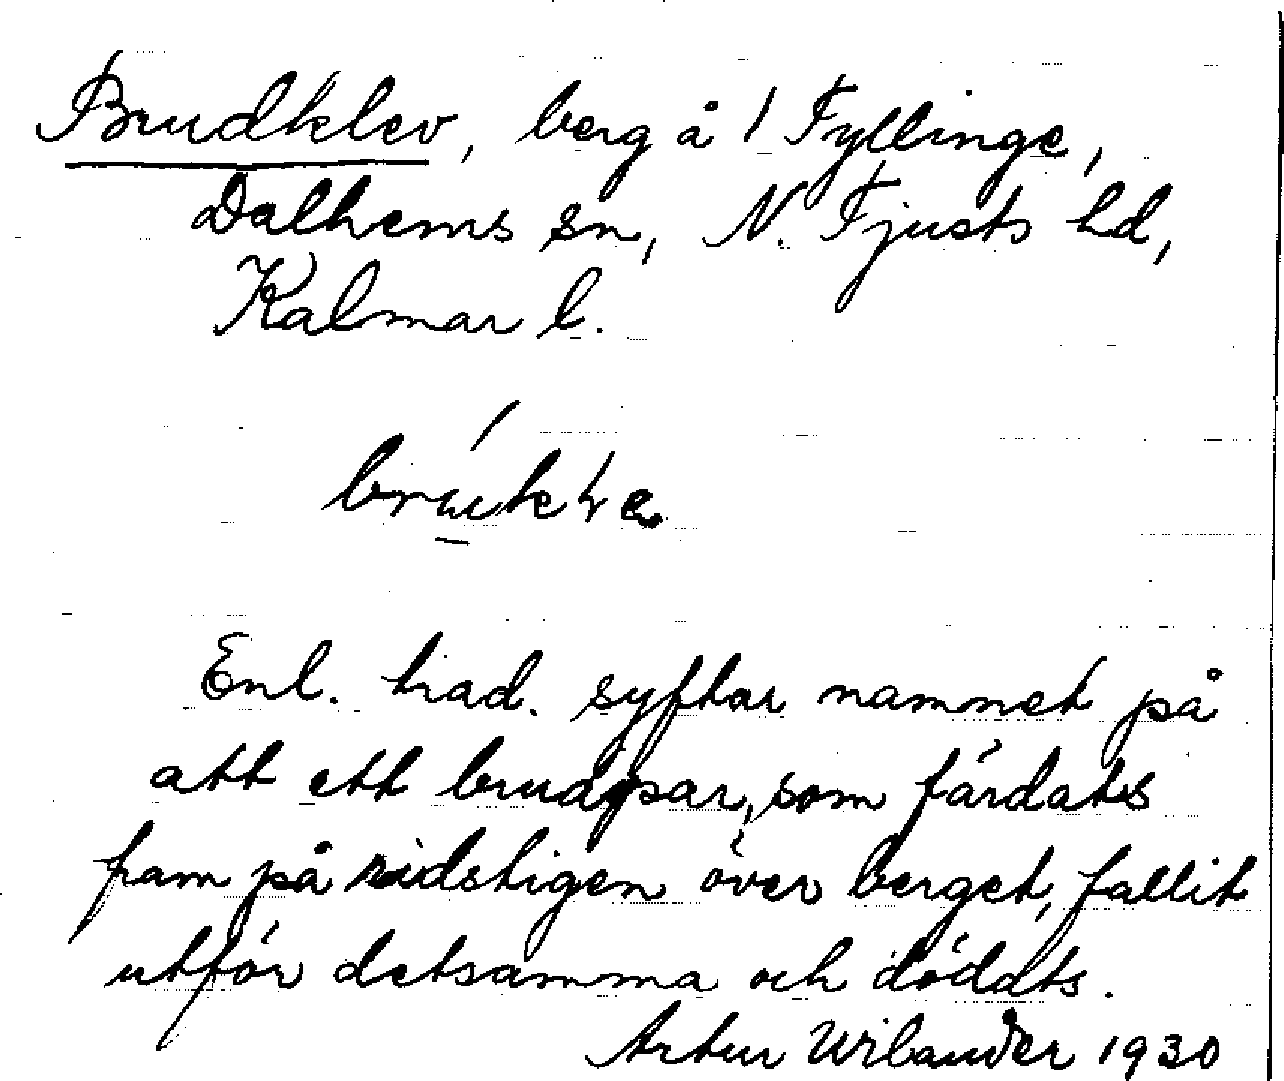 Brudklev, berg å 1 Fyllinge,
Dalhems sn, N. Tjusts hd,
Kalmar l.
Enl. trad. syftar namnet på
att ett brudpar, som färdats
fram på ridstigen över berget, fallit
utför detsamma och dödats.
Artur Wilander 1930